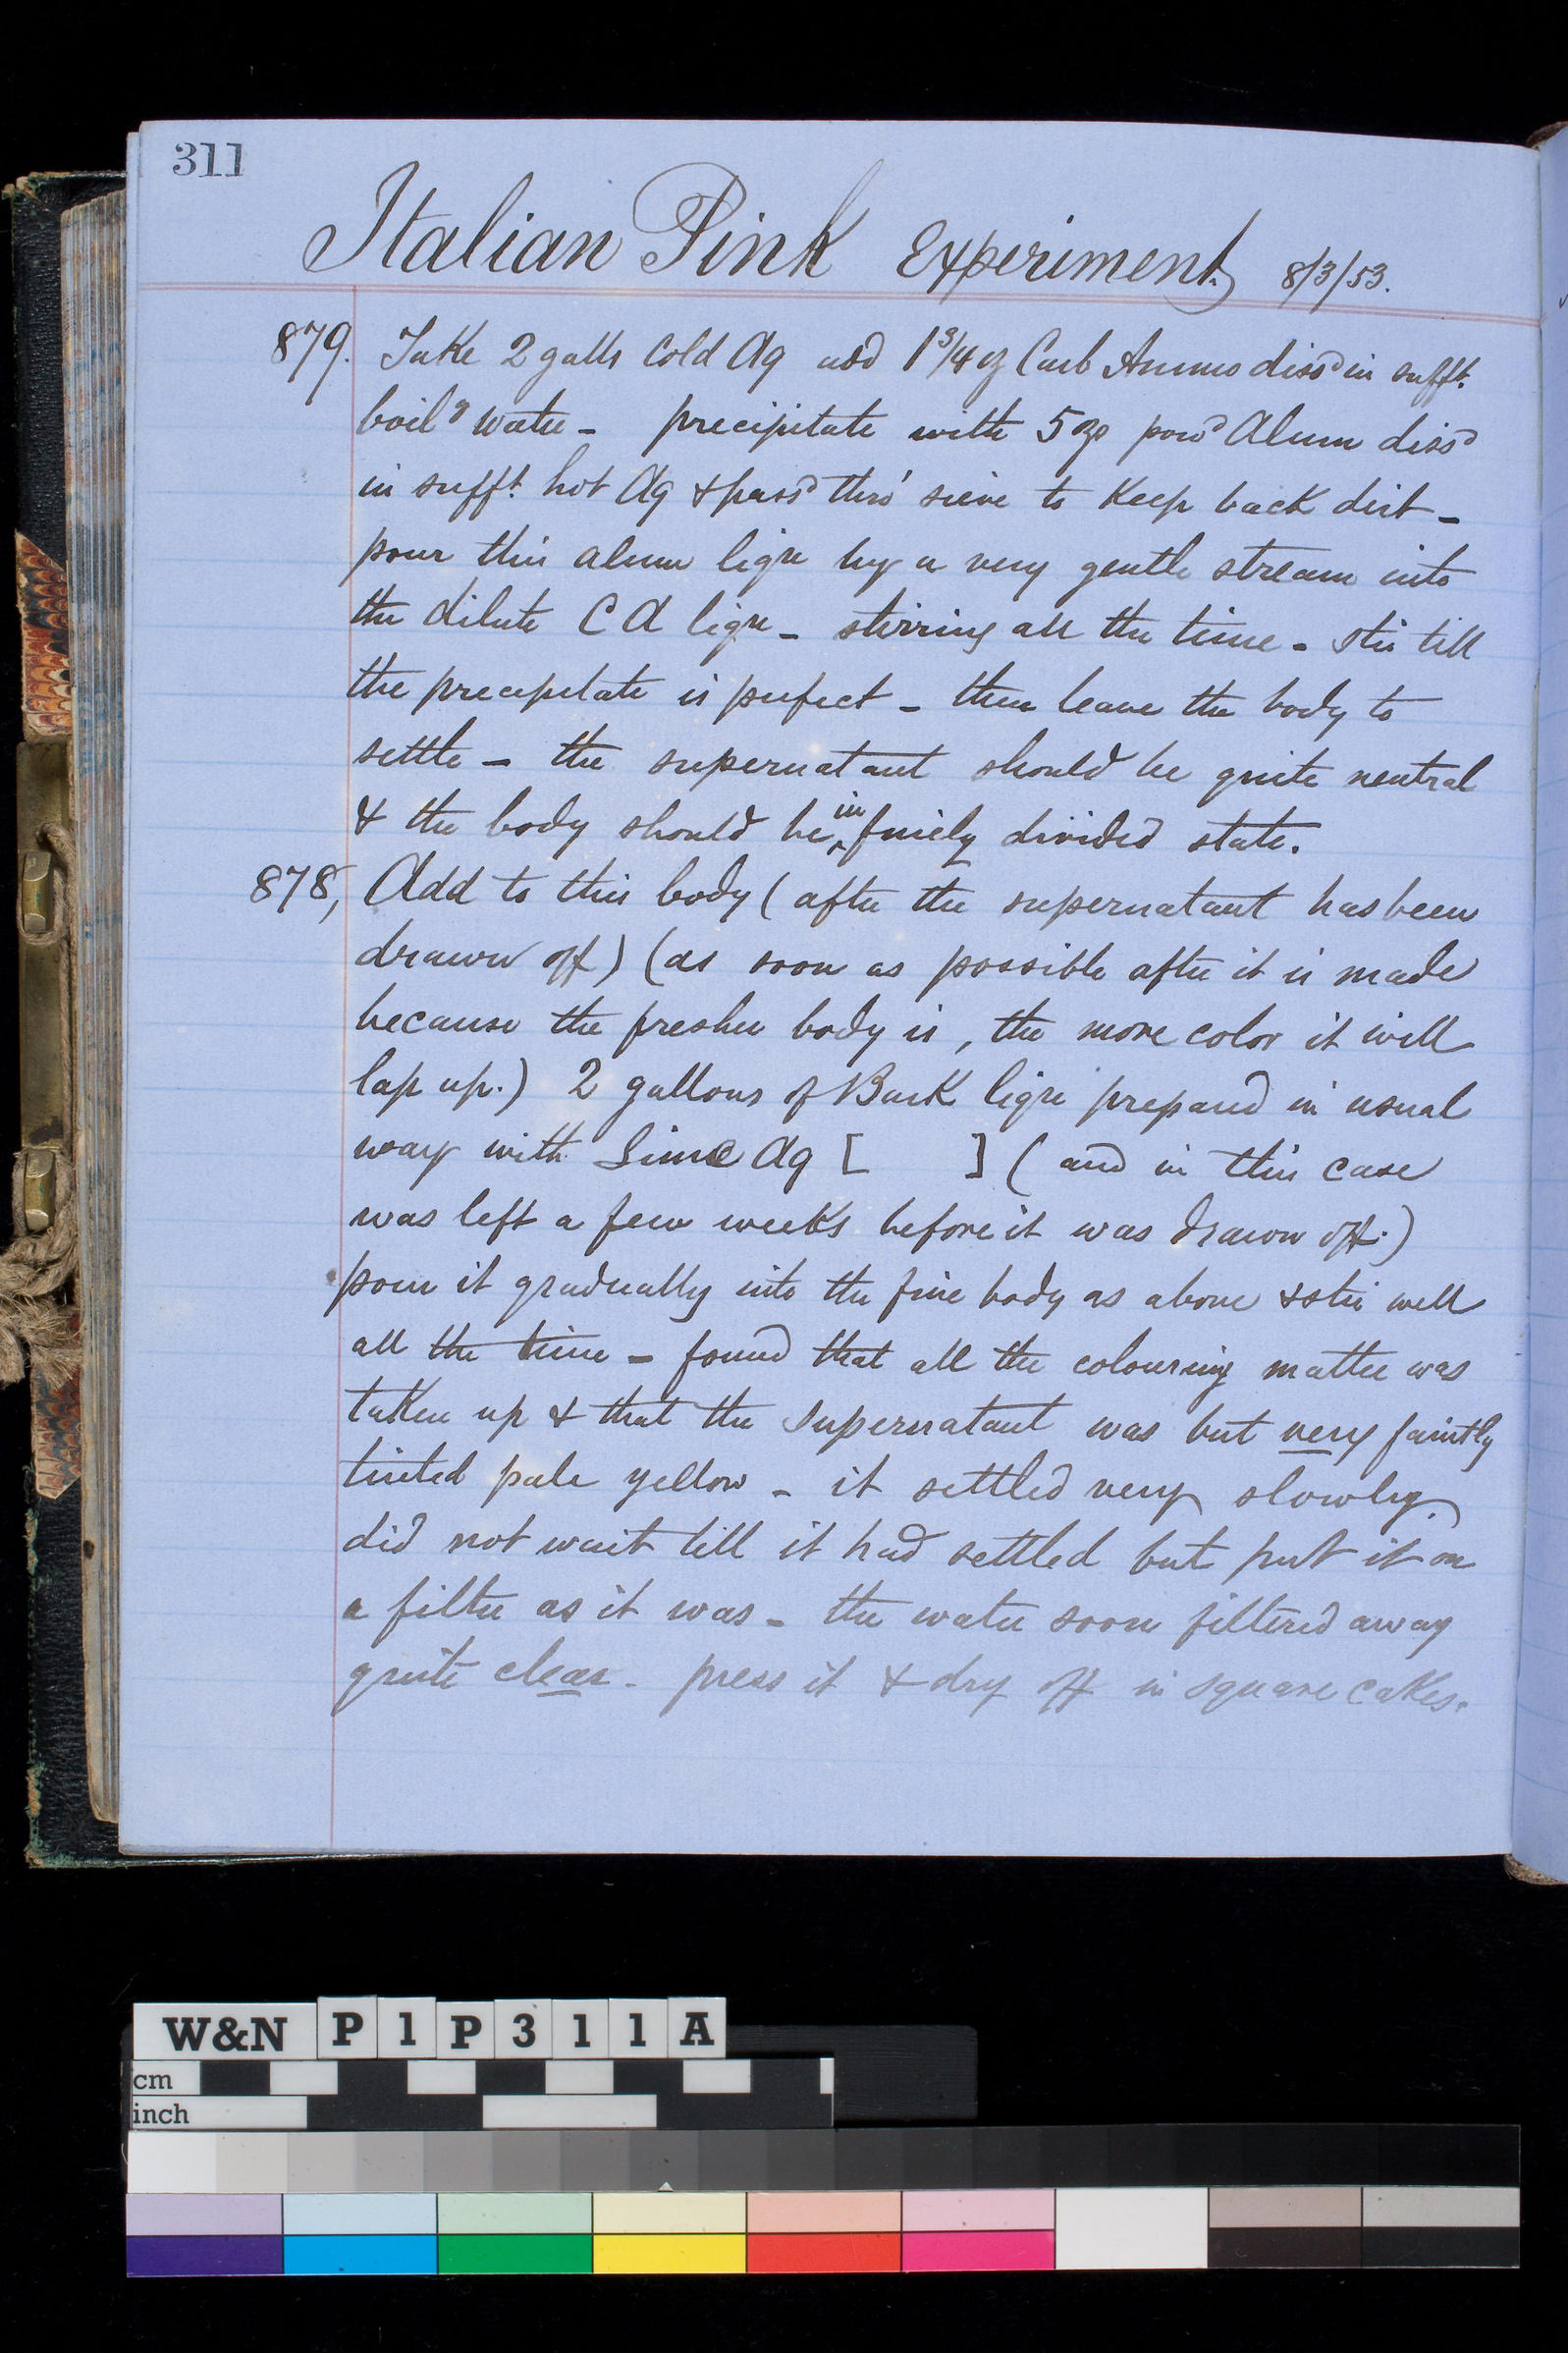 311
Italian Pink Experiment. 8/3/53.
879. Take 2 galls Cold Aq add 1 3/4 oz Carb Ammo dissd in sufft.
boilg water - precipitate with 5 ozs powd Alum dissd
in sufft. hot Aq & passd thro' sieve to keep back dirt -
pour this alum liqr by a very gentle stream into
the dilute C A liqr - stirring all the time - stir till
the precipitate is perfect - then leave the body to
settle - the supernatant should be quite neutral
& the body should be in finely divided state.
878, Add to this body (after the supernatant has been
drawn off) (as soon as possible after it is made
because the fresher body is, the more color it will
lap up.) 2 gallons of Bark liqr prepared in usual
way with Lime Aq [ ] (and in this case
was left a few weeks before it was drawn off.)
pour it gradually into the fine body as above & stir well
all the time - found that all the colouring matter was
taken up & that the supernatant was but very faintly
tinted pale yellow - it settled very slowly.
did not wait till it had settled but put it on
a filter as it was - the water soon filtered away
quite clear - press it & dry off in square cakes.
W&N P1P311A
cm
inch